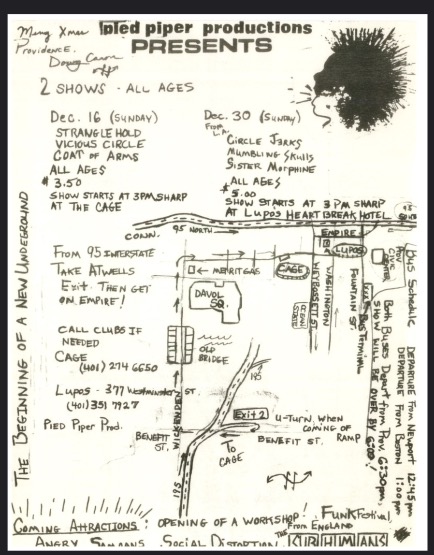 Merry Xmas
Providence.
pied piper productions
PRESENTS
2 SHOWS - ALL AGES
Dec. 16 (SUNDAY)
STRANGLEHOLD
VICIOUS CIRCLE
COAT OF ARMS
ALL AGES
$3.50
SHOW STARTS AT 3PM SHARP
AT THE CAGE
Dec. 30 (SUNDAY)
From L.A.
CIRCLE JERKS
MUMBLING SKULLS
SISTER MORPHINE
ALL AGES
$5.00
SHOW STARTS AT 3 PM SHARP
AT LUPOS HEARTBREAK HOTEL
THE BEGINNING OF A NEW UNDERGROUND
CONN.
95 NORTH
From 95 INTERSTATE
TAKE ATWELLS
Exit. THEN GET
ON EMPIRE!
CALL CLUBS IF
NEEDED
CAGE
(401) 274 6650
LUPOS - 377 Westminster ST.
(401) 351 7927
PIED Piper Prod.
MERIT GAS
DAVOL
SQ.
OLD
BRIDGE
CAGE
EMPIRE
LUPOS
CIVIC
CENTER
WEYBOSSETT ST.
WASHINGTON
FOUNTAIN ST.
Bus Terminal
WICKENDEN
BENEFIT
ST.
195
195
Exit 2
U-TURN WHEN
COMING OF
RAMP
BENEFIT ST.
To
CAGE
Bus Schedule
DEPARTURE FROM NEWPORT 12:45 pm
DEPARTURE FROM BOSTON 1:00 pm
Both Buses Depart from Prov. 6:30pm
SHOW WILL BE OVER BY 6:00!
COMING ATTRACTIONS: OPENING OF A WORKSHOP! FUNK Festival,
From ENGLAND
ANGRY SAMOANS Social Distortion THE SUBHUMANS!